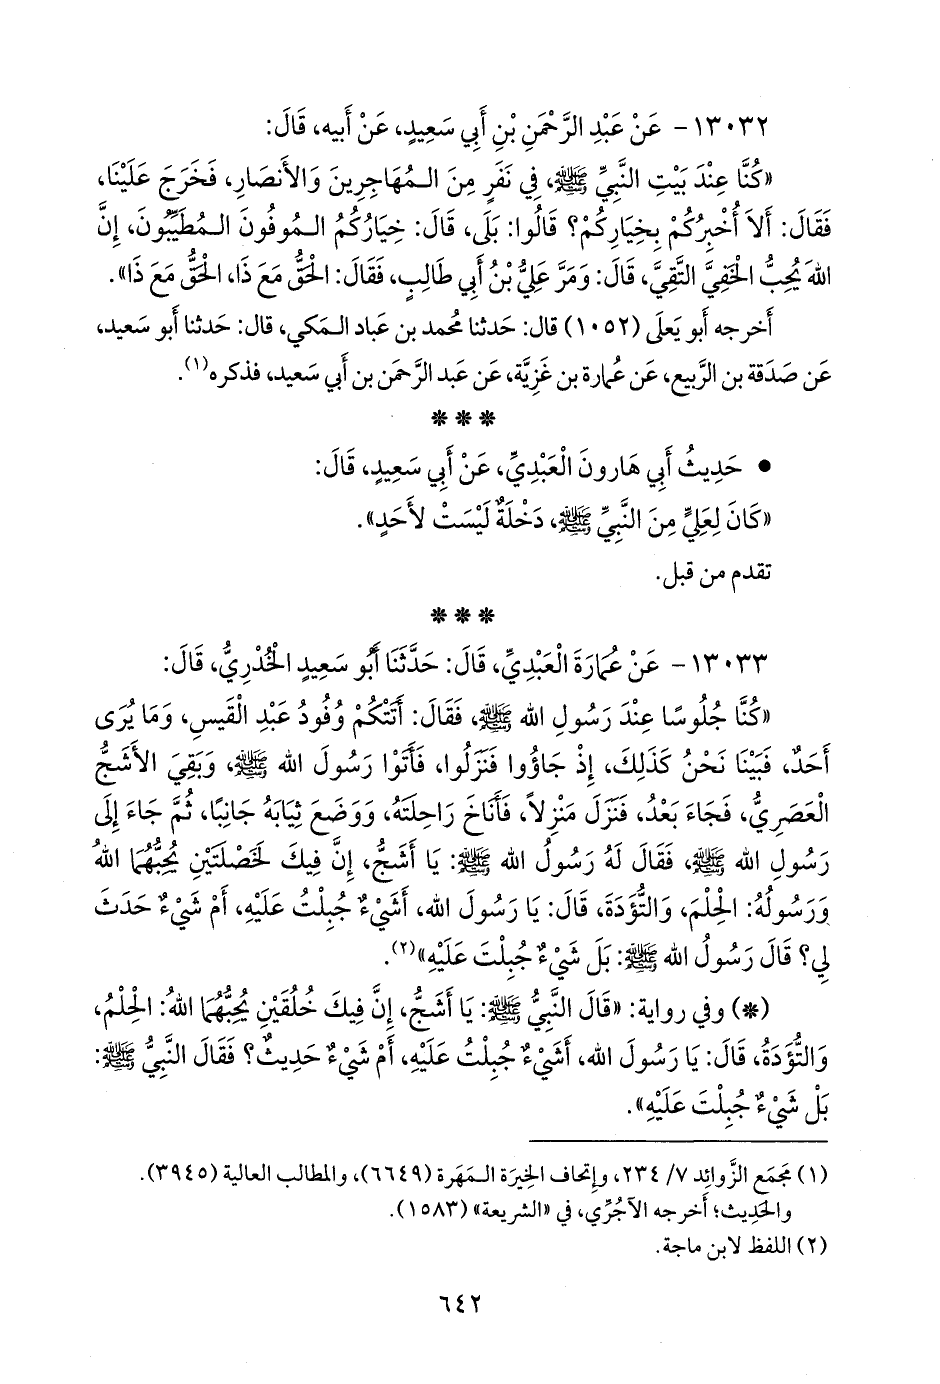 ١٣٠٣٢- عَنْ عَبْدِ الرَّحْمَنِ بْنِ أَبِي سَعِيدٍ، عَنْ أَبيه، قَالَ:
«كُنَّا عِنْدَ بَيْتِ النَّبِيِّ ﷺ، فِي نَفَرٍ مِنَ الـمُهَاجِرِينَ وَالأَنصَارِ، فَخَرَجَ عَلَيْنَا،
فَقَالَ: أَلاَ أُخْبِرُكُمْ بِخِيَارِكُمْ؟ قَالُوا: بَلَى، قَالَ: خِيَارُكُمُ الـمُوفُونَ الـمُطَيِّبُونَ، إِنَّ
اللهَ يُحِبُّ الْخَفِيَّ التَّقِيَّ، قَالَ: وَمَرَّ عَلِيُّ بْنُ أَبِي طَالِبٍ، فَقَالَ: الْحَقُّ مَعَ ذَا، الْحَقُّ مَعَ ذَا».
أَخرجه أَبو يَعلَى (١٠٥٢) قال: حَدثنا مُحمد بن عَباد الـمَكي، قال: حَدثنا أَبو سَعيد،
عَن صَدَقة بن الرَّبيع، عَن عُمارة بن غَزِيَّة، عَن عَبد الرَّحمَن بن أَبي سَعيد، فذكره(١).
* * *
• حَدِيثُ أَبِي هَارونَ الْعَبْدِيِّ، عَنْ أَبِي سَعِيدٍ، قَالَ:
«كَانَ لِعَلِيٍّ مِنَ النَّبِيِّ ﷺ، دَخْلَةٌ لَيْسَتْ لأَحَدٍ».
تقدم من قبل.
* * *
١٣٠٣٣- عَنْ عُمَارَةَ الْعَبْدِيِّ، قَالَ: حَدَّثَنَا أَبُو سَعِيدٍ الْخُدْرِيُّ، قَالَ:
«كُنَّا جُلُوسًا عِنْدَ رَسُولِ الله ﷺ، فَقَالَ: أَتَتْكُمْ وُفُودُ عَبْدِ الْقَيسِ، وَمَا يُرَى
أَحَدٌ، فَبَيْنَا نَحْنُ كَذَلِكَ، إِذْ جَاؤُوا فَنَزَلُوا، فَأَتَوْا رَسُولَ الله ﷺ، وَبَقِيَ الأَشَجُّ
الْعَصَرِيُّ، فَجَاءَ بَعْدُ، فَنَزَلَ مَنْزِلاً، فَأَنَاخَ رَاحِلَتَهُ، وَوَضَعَ ثِيَابَهُ جَانِبًا، ثُمَّ جَاءَ إِلَى
رَسُولِ الله ﷺ، فَقَالَ لَهُ رَسُولُ الله ﷺ: يَا أَشَجُّ، إِنَّ فِيكَ لَخَصْلَتَيْنِ يُحِبُّهُمَا اللهُ
وَرَسُولُهُ: الْحِلْمَ، وَالتُّؤَدَةَ، قَالَ: يَا رَسُولَ الله، أَشَيْءٌ جُبِلْتُ عَلَيْهِ، أَمْ شَيْءٌ حَدَثَ
لِي؟ قَالَ رَسُولُ الله ﷺ: بَلْ شَيْءٌ جُبِلْتَ عَلَيْهِ»(٢).
(*) وفي رواية: «قَالَ النَّبِيُّ ﷺ: يَا أَشَجُّ، إِنَّ فِيكَ خُلُقَيْنِ يُحِبُّهُمَا اللهُ: الْحِلْمُ،
وَالتُّؤَدَةُ، قَالَ: يَا رَسُولَ الله، أَشَيْءٌ جُبِلْتُ عَلَيْهِ، أَمْ شَيْءٌ حَدِيثٌ؟ فَقَالَ النَّبِيُّ ﷺ:
بَلْ شَيْءٌ جُبِلْتَ عَلَيْهِ».
(١) مَجمَع الزَّوائِد ٧/ ٢٣٤، وإِتحاف الخِيرَة الـمَهَرة (٦٦٤٩)، والمطالب العالية (٣٩٤٥).
والحَدِيث؛ أَخرجه الآجُرِّي، في «الشريعة» (١٥٨٣).
(٢) اللفظ لابن ماجة.
٦٤٢